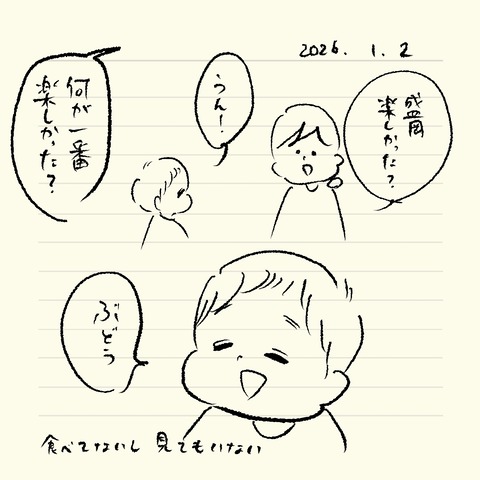 2026. 1. 2
盛岡
楽しかった?
うん!
何が一番
楽しかった?
ぶどう
食べてないし 見てもいない